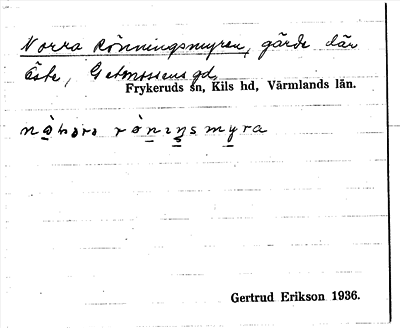 Norra Rönningsmyren, gärde där
Öste, Getmossens gd,
Frykeruds sn, Kils hd, Värmlands län.
rǿnıŋsmyra
Gertrud Erikson 1936.